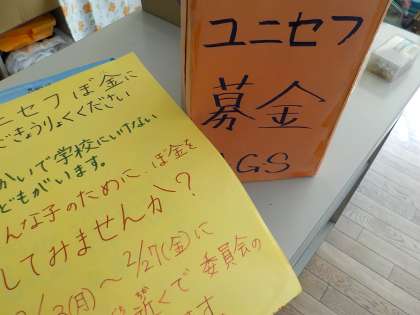 ユニセフ
募金
GS
ニセフぼ金に
ごきょうりょくください
かいで学校にいけない
どもがいます。
んな子のために、ぼ金を
してみませんか?
3(月)〜2/27(金)に
近くで委員会の
ます。